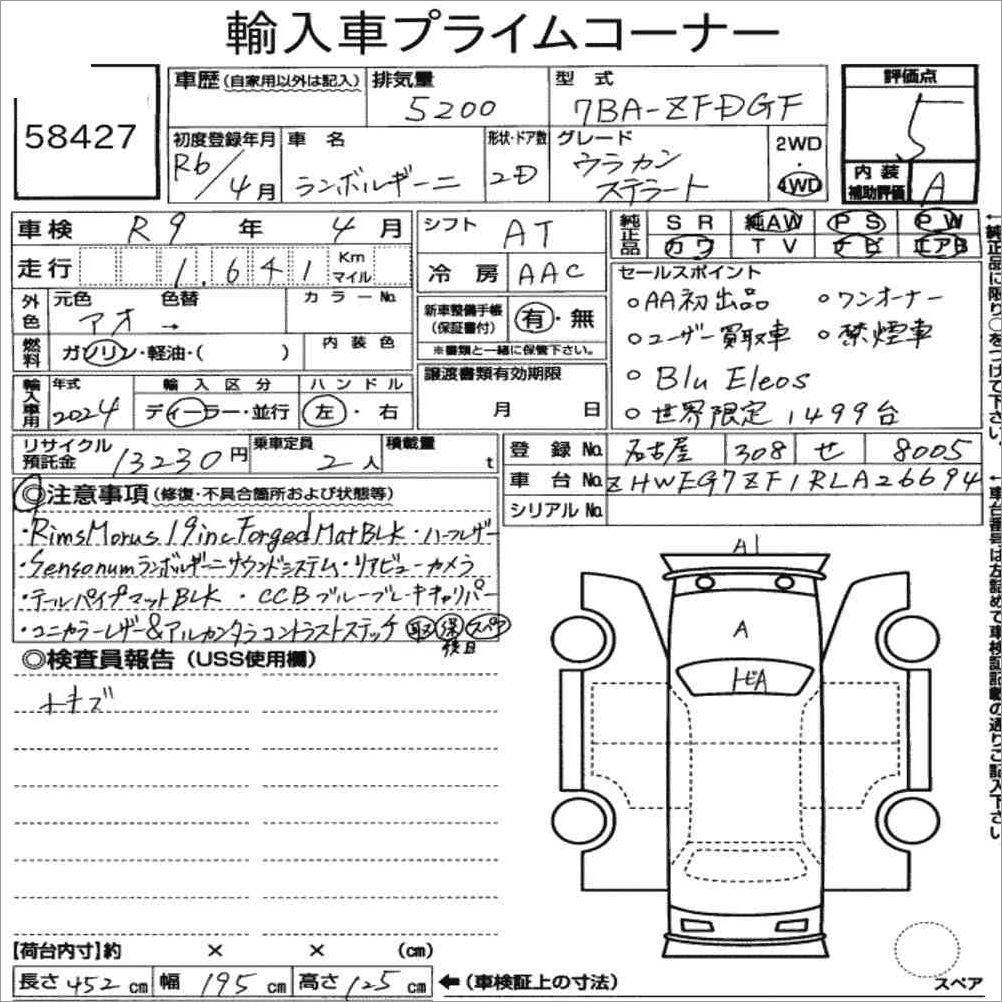 輸入車プライムコーナー
58427
車歴(自家用以外は記入)
排気量
5200
型式
7BA-ZFDGF
評価点
5
初度登録年月
R6/4月
車名
ランボルギーニ
形状・ドア数
2D
グレード
ウラカン
ステラート
2WD
・
4WD
内装
補助評価
A
車検 R9年 4月
シフト AT
純正品
SR 純AW PS PW
カワ TV ナビ エアB
走行 1.641 Km
マイル
冷房 AAC
セールスポイント
○AA初出品 ○ワンオーナー
○ユーザー買取車 ○禁煙車
○Blu Eleos
○世界限定 1499台
外色
元色 色替 カラーNo.
アオ→
新車整備手帳
(保証書付)
有・無
※書類と一緒に保管下さい。
燃料
ガソリン・軽油・( )
内装色
譲渡書類有効期限
月 日
輸入車用
年式
2024
輸入区分
ディーラー・並行
ハンドル
左・右
リサイクル
預託金 13230円
乗車定員
2人
積載量
t
登録No. 名古屋 308 せ 8005
車台No. ZHWEG7ZF1RLA26694
シリアルNo.
◎注意事項(修復・不具合箇所および状態等)
・Rims Morus 19inc Forged Mat BLK・ハーフレザー
・Sensonum ランボルギーニサウンドシステム・リアビューカメラ
・テールパイプマットBLK ・CCBブルーブレーキキャリパー
・ユニカラーレザー&アルカンタラコントラストステッチ 取 保 スペア
後日
◎検査員報告(USS使用欄)
小キズ
A1
A
トビA
←純正品に限り○をつけて下さい。
←車台番号は左詰めで車検証記載の通りご記入下さい
【荷台内寸】約 × × (cm)
長さ 452cm 幅 195cm 高さ 125cm ←(車検証上の寸法)
スペア